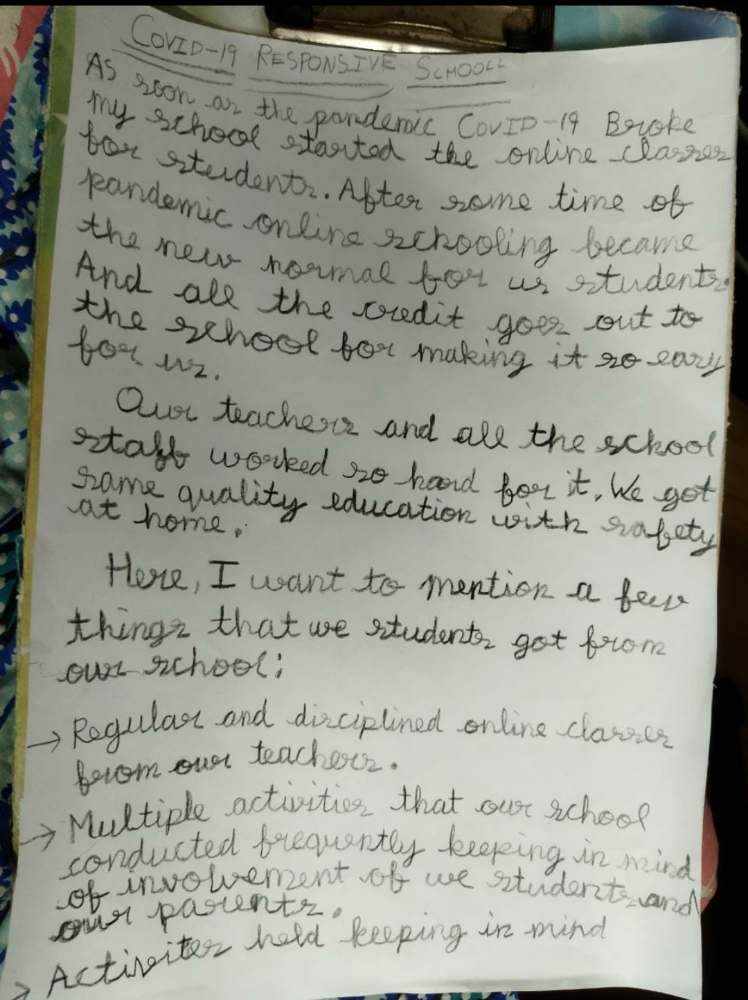 COVID-19 RESPONSIVE SCHOOLL
As soon as the pandemic COVID-19 Broke
my school started the online classes
for students. After some time of
pandemic online schooling became
the new normal for us students.
And all the credit goes out to
the school for making it so easy
for us.
Our teachers and all the school
staff worked so hard for it. We got
same quality education with safety
at home.
Here, I want to mention a few
things that we students got from
our school:
→ Regular and disciplined online classes
from our teachers.
→ Multiple activities that our school
conducted frequently keeping in mind
of involvement of we students and
our parents.
→ Activites held keeping in mind